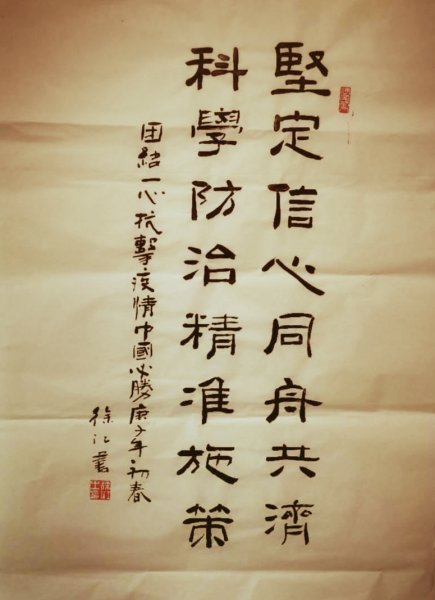 堅定信心同舟共濟
科學防治精准施策
团結一心抗擊疫情中國必勝庚子年初春
徐江書